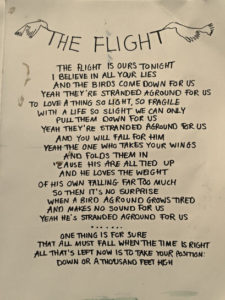 THE FLIGHT
THE FLIGHT IS OURS TONIGHT
I BELIEVE IN ALL YOUR LIES
AND THE BIRDS COME DOWN FOR US
YEAH THEY'RE STRANDED AGROUND FOR US
TO LOVE A THING SO LIGHT, SO FRAGILE
WITH A LIFE SO SLIGHT WE CAN ONLY
PULL THEM DOWN FOR US
YEAH THEY'RE STRANDED AGROUND FOR US
AND YOU WILL FALL FOR HIM
YEAH THE ONE WHO TAKES YOUR WINGS
AND FOLDS THEM IN
'CAUSE HIS ARE ALL TIED UP
AND HE LOVES THE WEIGHT
OF HIS OWN FALLING FAR TOO MUCH
SO THEN IT'S NO SURPRISE
WHEN A BIRD AGROUND GROWS TIRED
AND MAKES NO SOUND FOR US
YEAH HE'S STRANDED AGROUND FOR US
.......
ONE THING IS FOR SURE
THAT ALL MUST FALL WHEN THE TIME IS RIGHT
ALL THAT'S LEFT NOW IS TO TAKE YOUR POSITION:
DOWN OR A THOUSAND FEET HIGH